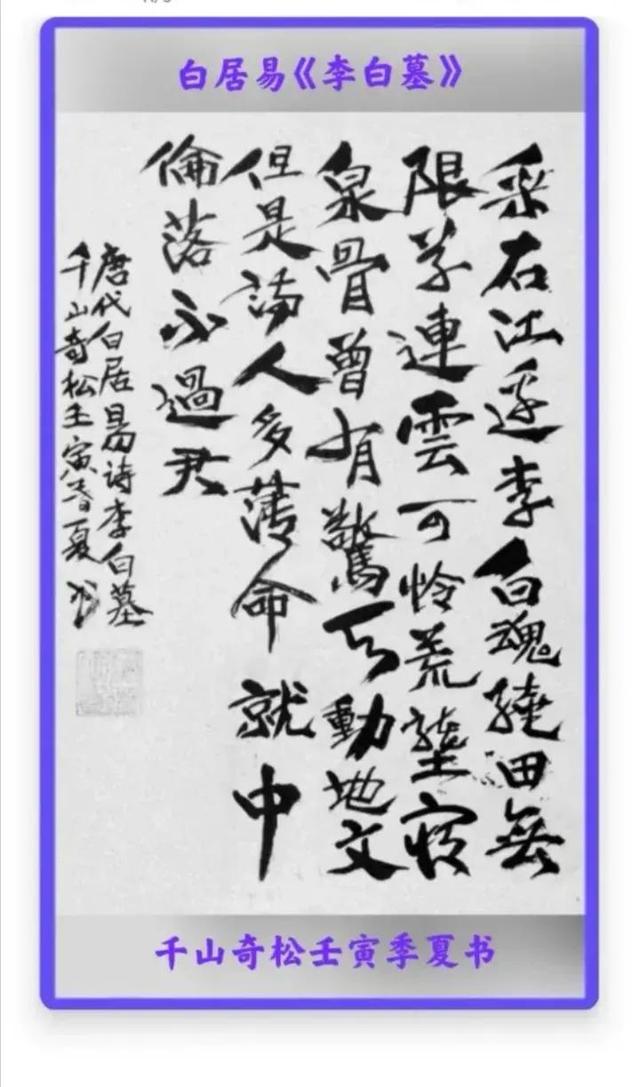 白居易《李白墓》
采石江邊李白魂繞田無
限草連雲可怜荒壟
泉骨曾有驚天動地文
但是詩人多薄命就中
倫落不過君
唐代白居易诗李白墓
千山奇松壬寅季夏书
千山奇松壬寅季夏书